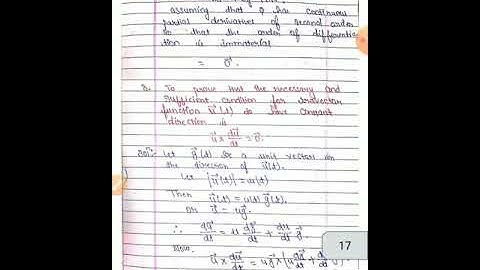 assuming that φ has continuous
partial derivatives of second order
so that the order of differentia
tion is immaterial
= 0⃗.
3. To prove that the necessary and
sufficient condition for
function u⃗(t) to have constant
direction is
u⃗ × du⃗/dt = 0⃗.
Solⁿ:- Let g⃗(t) be a unit vectors in
the direction of u⃗(t).
Let |u⃗(t)| = u(t)
Then u⃗(t) = u(t) g⃗(t)
or u⃗ = ug⃗.
∴ du⃗/dt = u dg⃗/dt + du/dt g⃗.
Now, u⃗ × du⃗/dt = ug⃗ × (u dg⃗/dt +
17